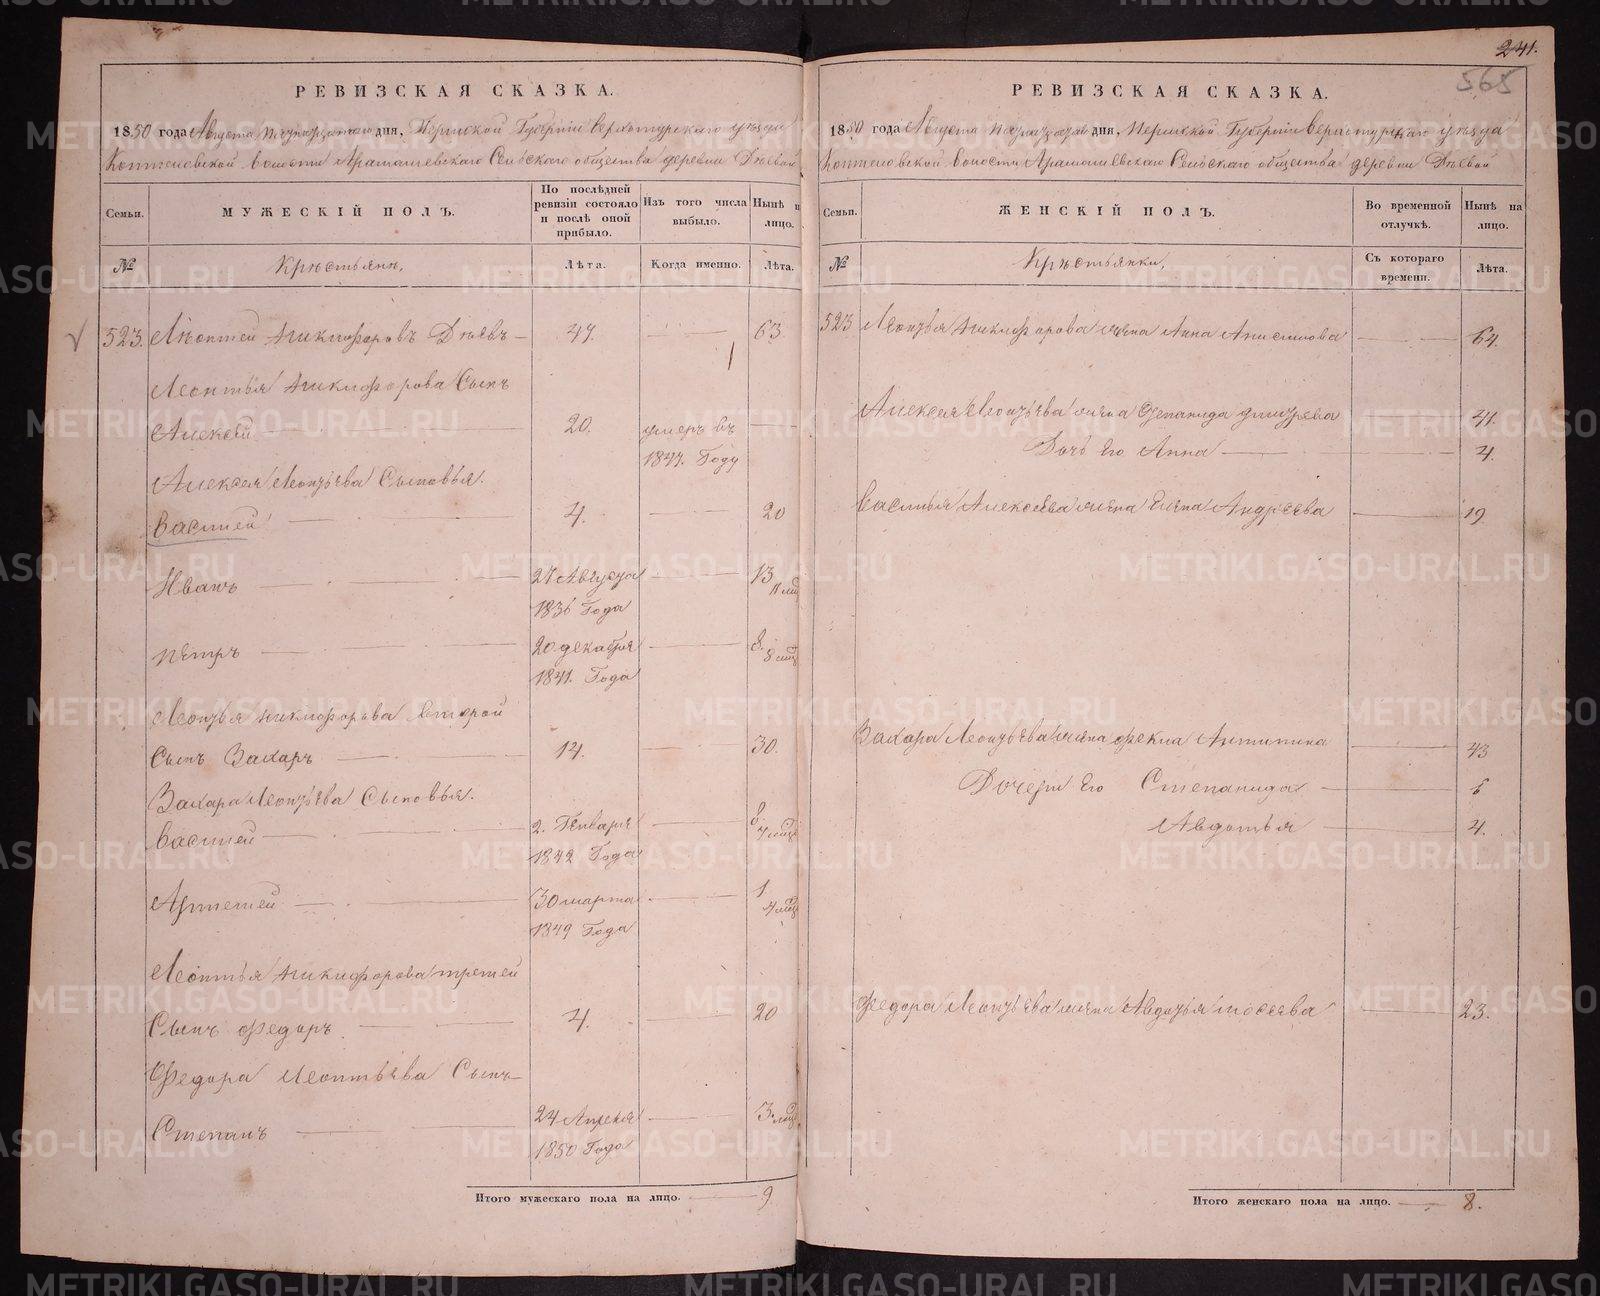 241.
565
РЕВИЗСКАЯ СКАЗКА.
1850 года Августа дня, Пермской Губернiи Верхотурскаго уѣзда
Коптеловской волости Арамашевскаго Сельскаго общества деревни Дѣевой
Семьи.
МУЖЕСКIЙ ПОЛЪ.
По послѣдней ревизiи состояло и послѣ оной прибыло.
Изъ того числа выбыло.
Нынѣ н лицо.
№
Крѣстьянѣ,
Лѣта.
Когда именно.
Лѣта.
523. Лѣонтей Никифоровъ Дѣевъ 47. 63
Леонтья Никифорова Сынъ
Алексѣй 20. умеръ въ
1847. Году
Алексея Леонтьева Сыновья.
Василей 4. 20
Иванъ 27 Августа 13
1836 Года 11 мѣц
Пѣтръ 20 декабря 8.
1841. Года 8 мѣц
Леонтья Никифорова второй
Сынъ Захаръ 14. 30.
Захара Леонтьева Сыновья.
Василей 2. Генваря 8.
1842 Года 7 мѣц
Артемей 30 марта 1
1849 Года 4 мѣц
Леонтья Никифорова третей
Сынъ Федоръ 4. 20
Федора Леонтьева Сынъ
Степанъ 24 Апреля 3. мѣц
1850 Года
Итого мужескаго пола на лицо. 9
РЕВИЗСКАЯ СКАЗКА.
1850 года Августа дня, Пермской Губернiи Верхотурскаго уѣзда
Коптеловской волости Арамашевскаго Сельскаго общества деревни Дѣевой
Семьи.
ЖЕНСКIЙ ПОЛЪ.
Во временной отлучкѣ.
Нынѣ на лицо.
№
Крѣстьянки,
Съ котораго времени.
Лѣта.
523 Леонтья Никифорова жена Анна Анисимова 64.
Алексея Леонтьева жена Степанида 41.
Дочь Его Анна 4.
Василья Алексеева жена Елена Андрѣева 19
Захара Леонтьева жена Фекла Антипина 43
Дочери Его Степанида 6
Авдотья 4.
Федора Леонтьева жена Авдотья Мосеева 23.
Итого женскаго пола на лицо. 8.
METRIKI.GASO-URAL.RU